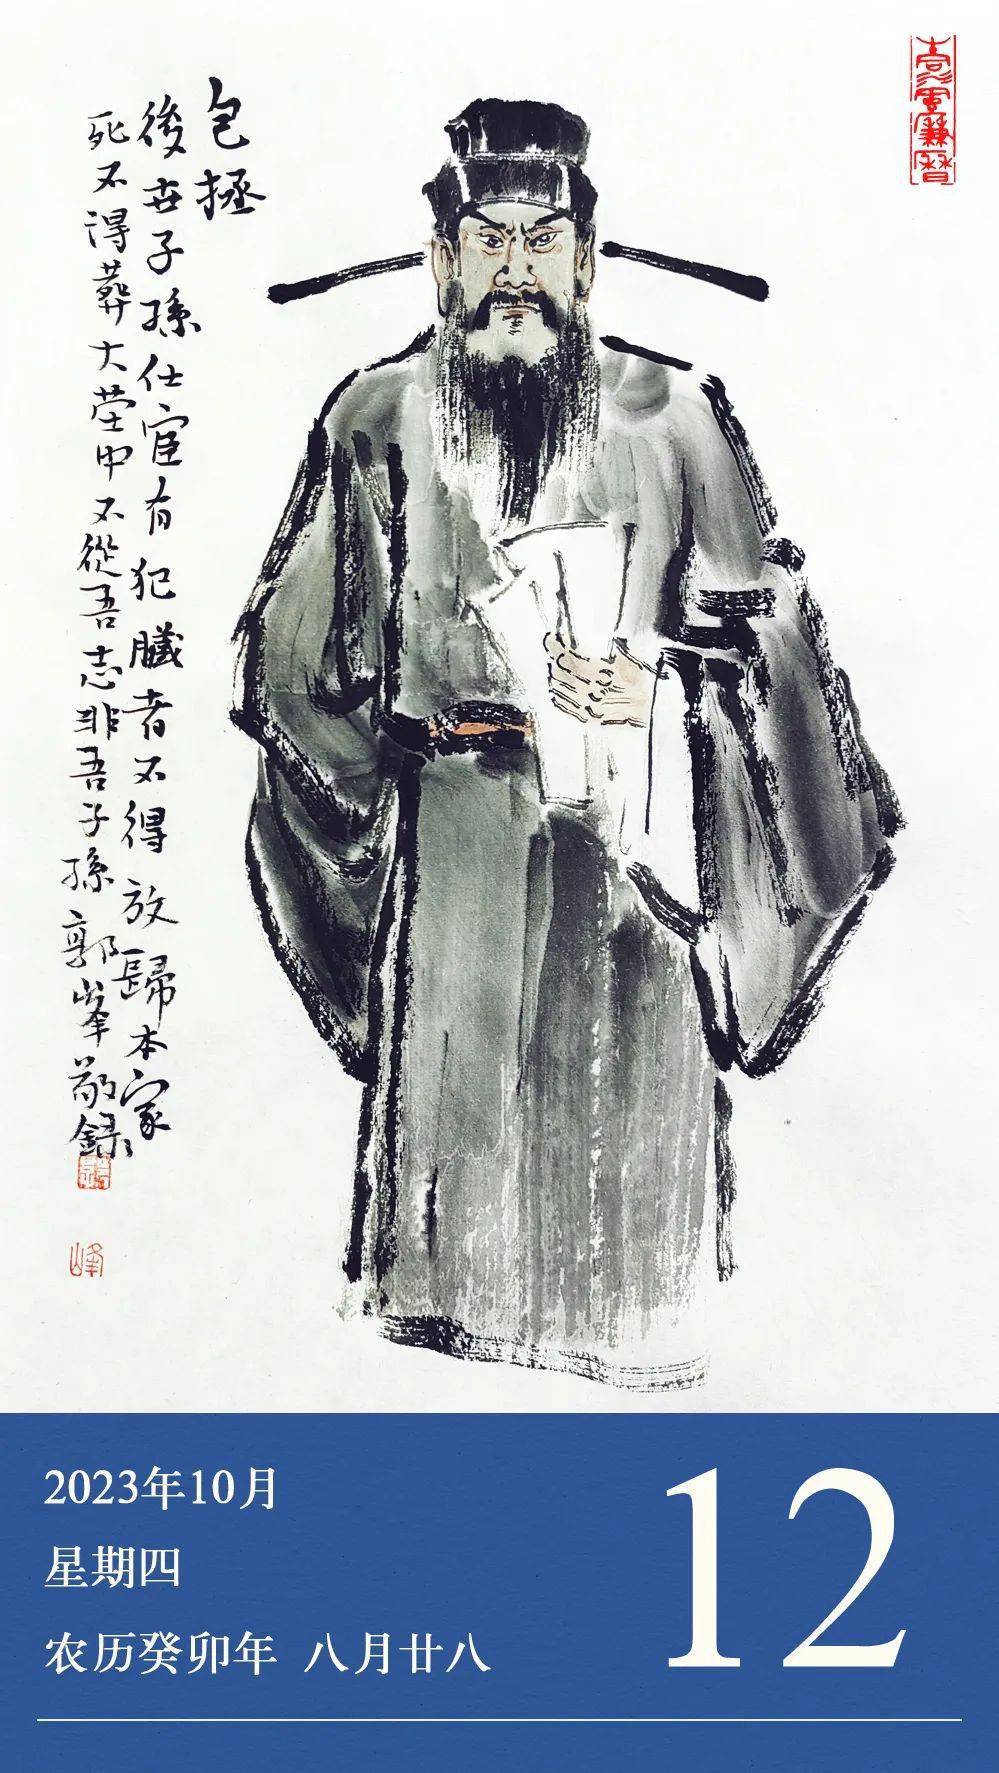 包拯
後世子孫仕宦有犯贓者不得放歸本家
死不得葬大塋中不從吾志非吾子孫郭峯敬錄
峰
2023年10月
12
星期四
农历癸卯年 八月廿八